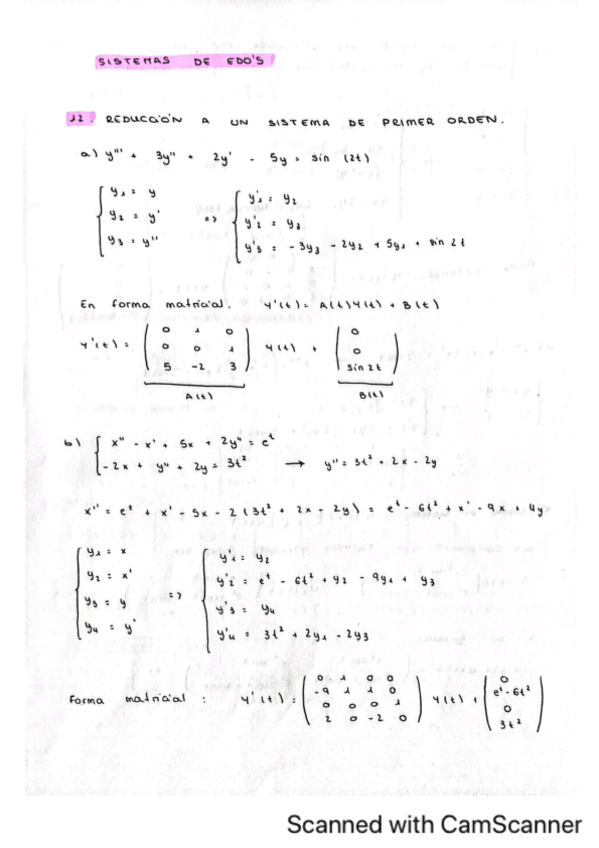 SISTEMAS DE EDO'S
12. REDUCCIÓN A UN SISTEMA DE PRIMER ORDEN.
a) y''' + 3y'' + 2y' - 5y = sin (2t)
{ y₁ = y
y₂ = y'
y₃ = y''
=> { y'₁ = y₂
y'₂ = y₃
y'₃ = -3y₃ - 2y₂ + 5y₁ + sin 2t
En forma matricial. Y'(t) = A(t)Y(t) + B(t)
Y'(t) = ( 0 1 0
0 0 1
5 -2 3 ) Y(t) + ( 0
0
sin 2t )
A(t) B(t)
b) { x'' - x' + 5x + 2y'' = eᵗ
-2x + y'' + 2y = 3t² → y'' = 3t² + 2x - 2y
x'' = eᵗ + x' - 5x - 2(3t² + 2x - 2y) = eᵗ - 6t² + x' - 9x + 4y
{ y₁ = x
y₂ = x'
y₃ = y
y₄ = y'
=> { y'₁ = y₂
y'₂ = eᵗ - 6t² + y₂ - 9y₁ + y₃
y'₃ = y₄
y'₄ = 3t² + 2y₁ - 2y₃
Forma matricial : Y'(t) = ( 0 1 0 0
-9 1 1 0
0 0 0 1
2 0 -2 0 ) Y(t) + ( 0
eᵗ - 6t²
0
3t² )
Scanned with CamScanner